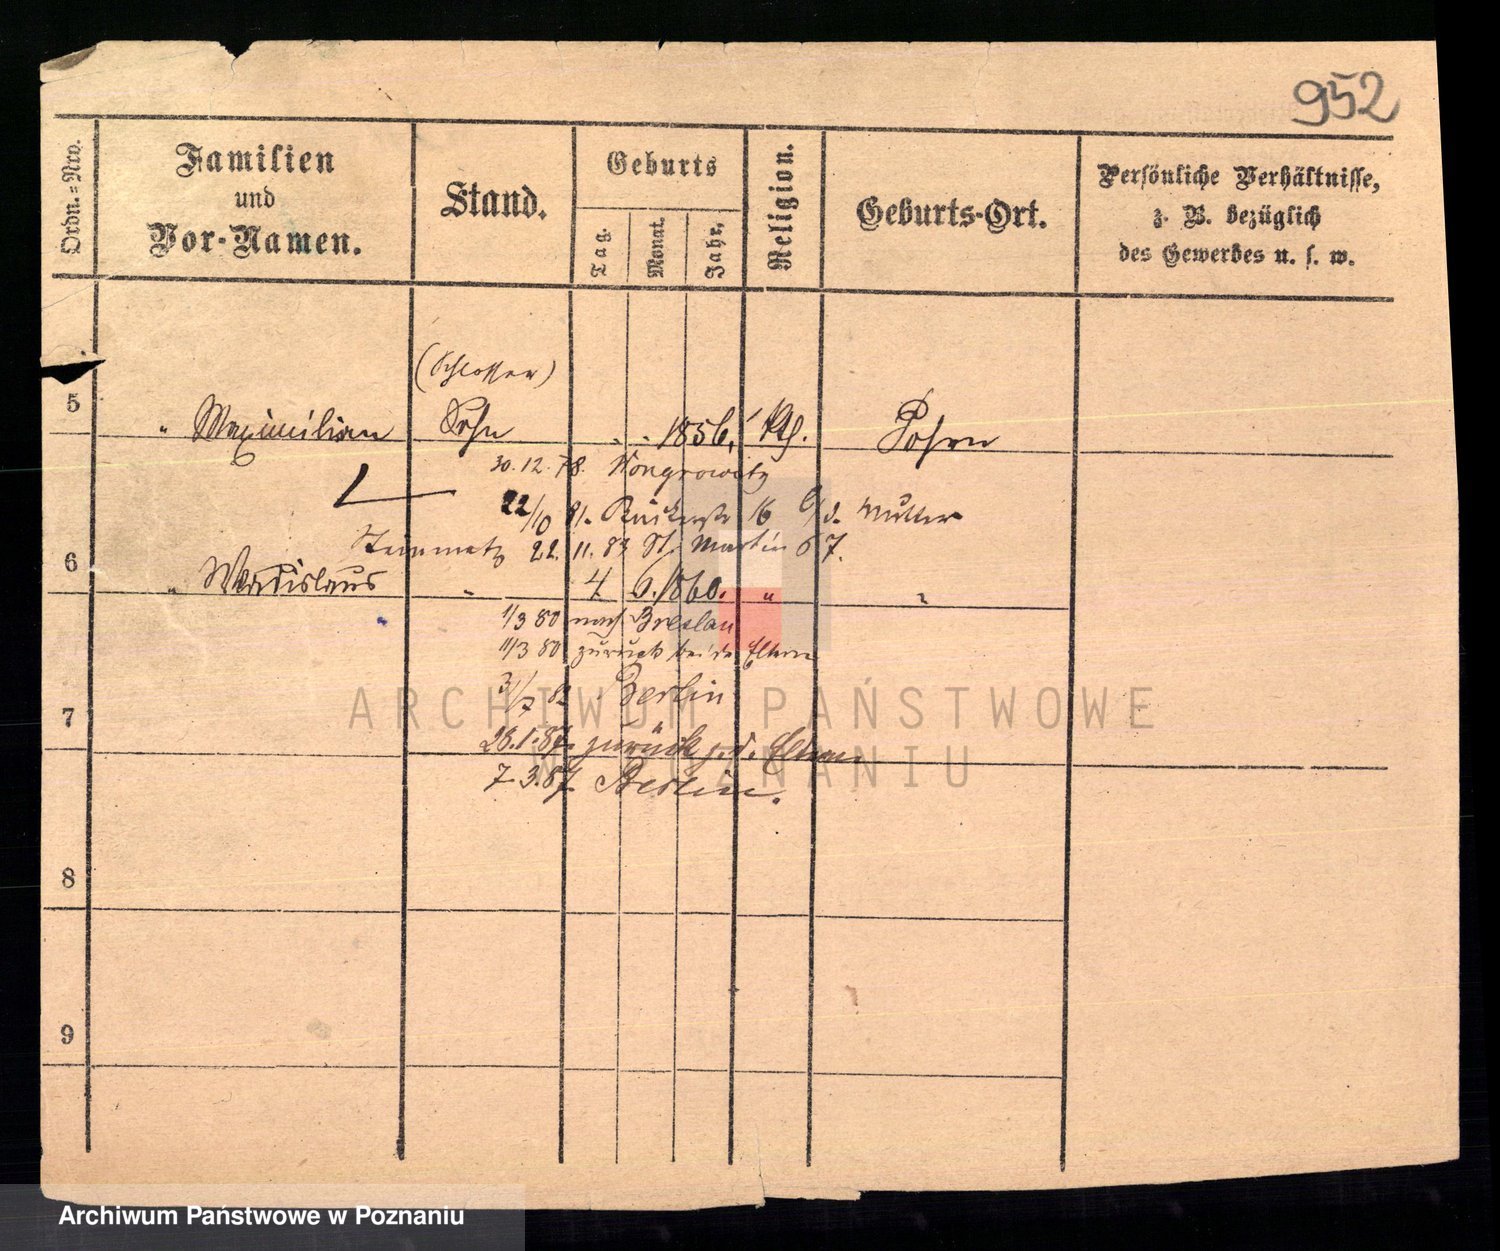 952
Ordn.=Nro.
Familien
und
Vor-Namen.
Stand.
Geburts
Tag.
Monat.
Jahr.
Religion.
Geburts-Ort.
Persönliche Verhältnisse,
z. B. bezüglich
des Gewerbes u. s. w.
(Schlosser)
5 " Maximilian Sohn . . 1856. Kth. Posen
30.12.78. Wongrowitz
22/10 81. 16 b/d. Mutter
Steinmetz 22.11.83 St. Martin 67.
6 " Wladislaus " 4 6. 1860. " "
1/3 80 nach Breslau
11/3 80 zurück bei d. Eltern
3/7 82 Berlin
7
28.1.87. zurück z. d. Eltern
7.3.87. Berlin.
8
9
ARCHIWUM PAŃSTWOWE
W POZNANIU
Archiwum Państwowe w Poznaniu